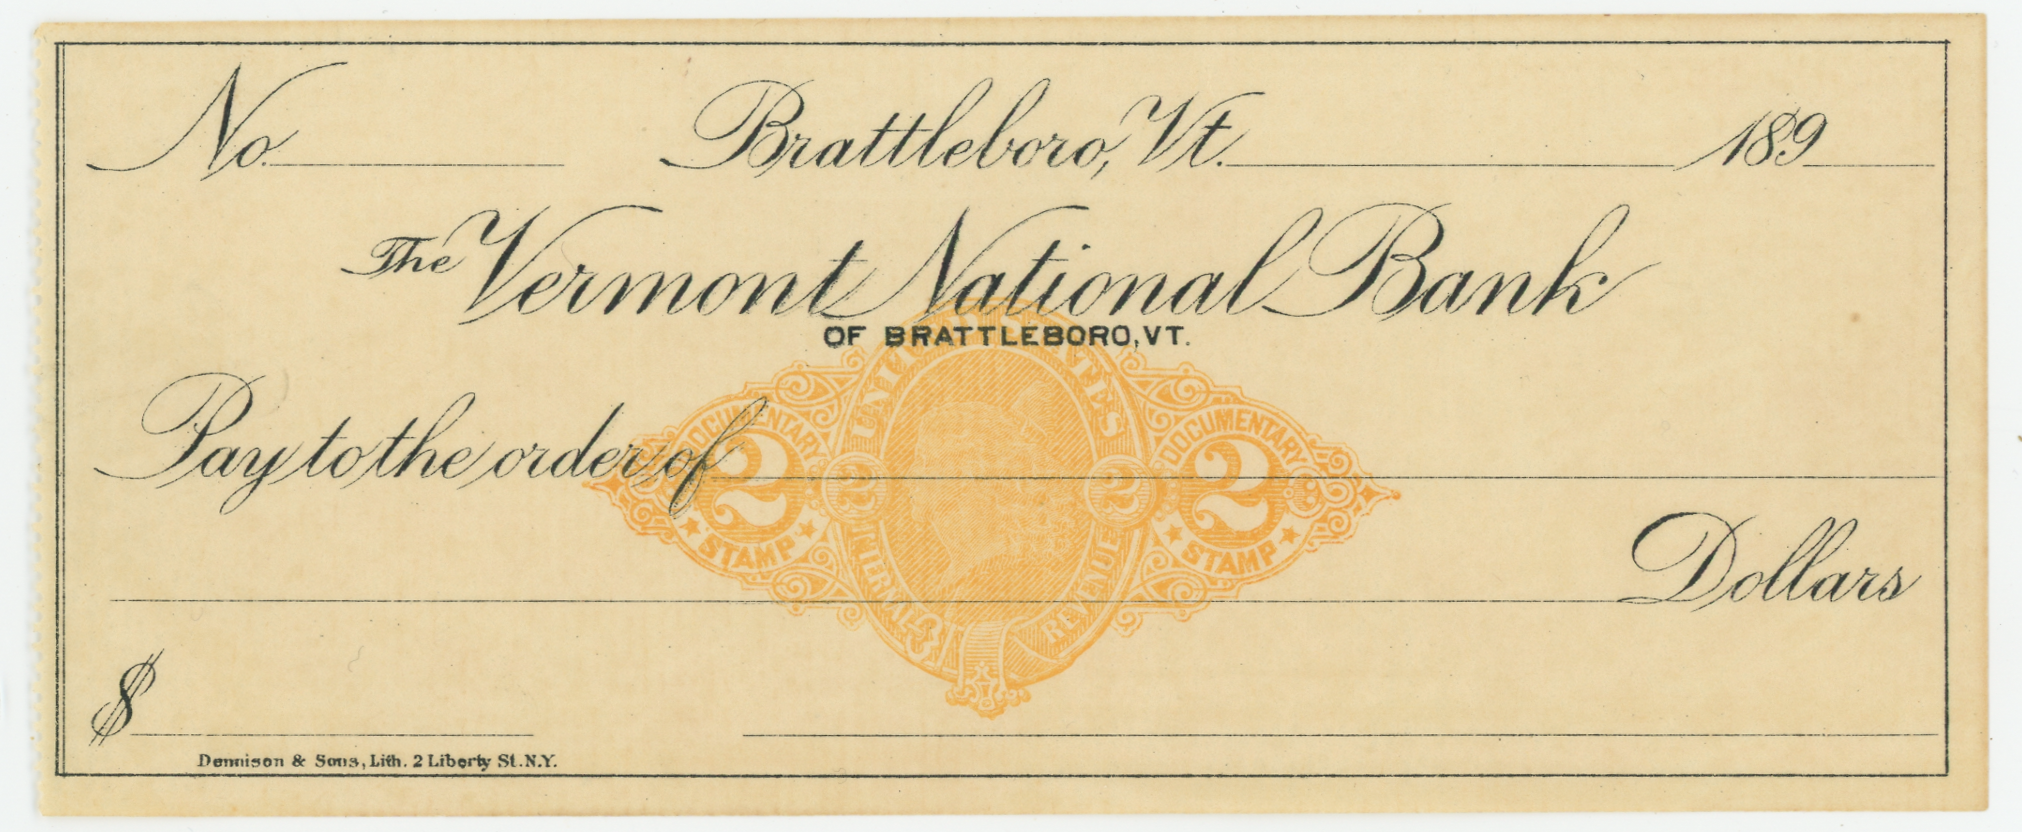 No. Brattleboro, Vt. 189
The Vermont National Bank
OF BRATTLEBORO, VT.
UNITED STATES
Pay to the order of
DOCUMENTARY 2 STAMP
2 2
DOCUMENTARY 2 STAMP
INTERNAL REVENUE
Dollars
$
Dennison & Sons, Lith. 2 Liberty St. N.Y.